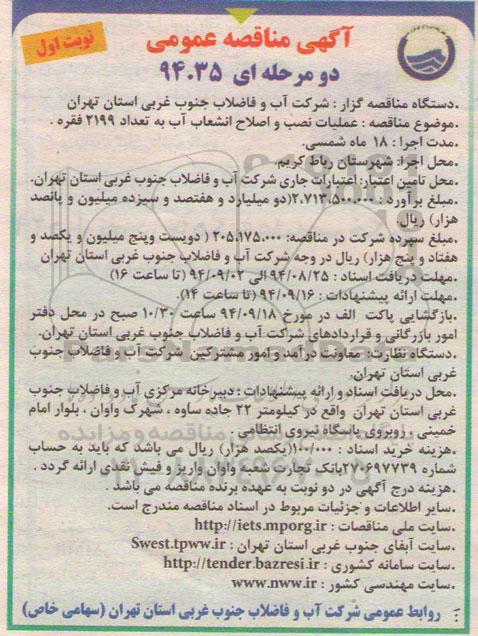 نوبت اول
آگهی مناقصه عمومی
دو مرحله ای ۹۴.۳۵
.دستگاه مناقصه گزار : شرکت آب و فاضلاب جنوب غربی استان تهران
.موضوع مناقصه : عملیات نصب و اصلاح انشعاب آب به تعداد ۲۱۹۹ فقره .
.مدت اجرا : ۱۸ ماه شمسی.
.محل اجرا: شهرستان رباط کریم.
.محل تامین اعتبار: اعتبارات جاری شرکت آب و فاضلاب جنوب غربی استان تهران.
.مبلغ برآورد : ۲.۷۱۳.۵۰۰.۰۰۰(دو میلیارد و هفتصد و سیزده میلیون و پانصد
هزار) ریال
.مبلغ سپرده شرکت در مناقصه: ۲۰۵.۱۷۵.۰۰۰ ( دویست وپنج میلیون و یکصد و
هفتاد و پنج هزار) ریال در وجه شرکت آب و فاضلاب جنوب غربی استان تهران
.مهلت دریافت اسناد : ۹۴/۰۸/۲۵ الی ۹۴/۰۹/۰۲ (تا ساعت ۱۶)
.مهلت ارائه پیشنهادات : ۹۴/۰۹/۱۶ (تا ساعت ۱۴).
.بازگشایی پاکت الف در مورخ ۹۴/۰۹/۱۸ ساعت ۱۰/۳۰ صبح در محل دفتر
امور بازرگانی و قراردادهای شرکت آب و فاضلاب جنوب غربی استان تهران.
.دستگاه نظارت: معاونت درآمد و امور مشترکین شرکت آب و فاضلاب جنوب
غربی استان تهران.
.محل دریافت اسناد و ارائه پیشنهادات : دبیرخانه مرکزی آب و فاضلاب جنوب
غربی استان تهران واقع در کیلومتر ۲۲ جاده ساوه ، شهرک واوان ، بلوار امام
خمینی ، روبروی پاسگاه نیروی انتظامی .
.هزینه خرید اسناد : ۱۰۰/۰۰۰(یکصد هزار) ریال می باشد که باید به حساب
شماره ۲۷۰۶۹۷۷۳۹بانک تجارت شعبه واوان واریز و فیش نقدی ارائه گردد .
.هزینه درج آگهی در دو نوبت به عهده برنده مناقصه می باشد .
.سایر اطلاعات و جزئیات مربوط در اسناد مناقصه مندرج است.
.سایت ملی مناقصات : http://iets.mporg.ir
.سایت آبفای جنوب غربی استان تهران : Swest.tpww.ir
.سایت سامانه کشوری : http://tender.bazresi.ir
.سایت مهندسی کشور : www.nww.ir
روابط عمومی شرکت آب و فاضلاب جنوب غربی استان تهران (سهامی خاص)